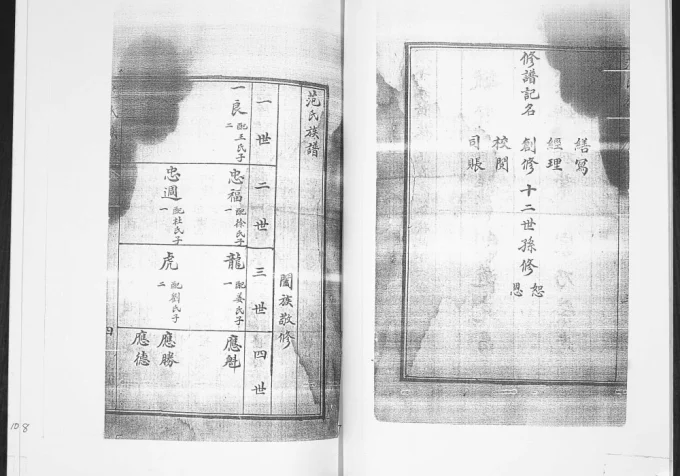 修譜記名
繕寫
經理
創修 十二世孫修 恕 恩
校閱
司賬
范氏族譜
闔族敬修
一世 二世 三世 四世
一良 配王氏子二
忠福 配徐氏子一
忠週 配杜氏子一
龍 配姜氏子一
虎 配劉氏子二
應魁
應勝
應德
四
108